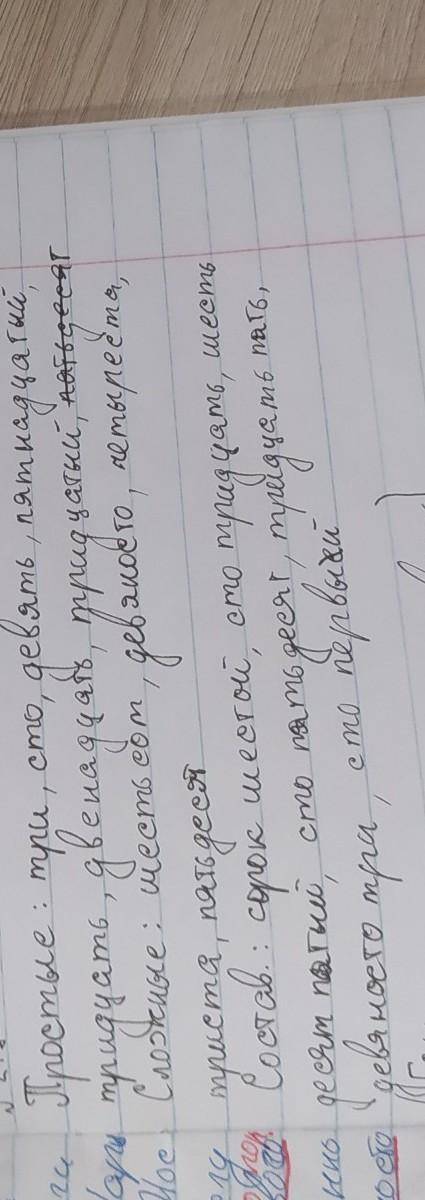 Простые: три, сто, девять, пятнадцатый,
тридцать, двенадцать, тридцатый, пятьдесят
Сложные: шестьсот, девяносто, четыреста,
триста, пятьдесят
Состав.: сорок шестой, сто тридцать, шесть
десят пятый, сто пятьдесят, тридцать пять,
девяносто три, сто первый